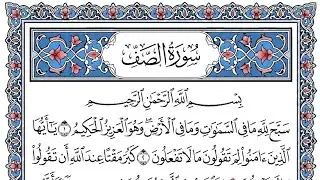 سُورَةُ الصَّفِّ
بِسْمِ ٱللَّهِ ٱلرَّحْمَٰنِ ٱلرَّحِيمِ
سَبَّحَ لِلَّهِ مَا فِي ٱلسَّمَٰوَٰتِ وَمَا فِي ٱلْأَرْضِۖ وَهُوَ ٱلْعَزِيزُ ٱلْحَكِيمُ ١ يَٰٓأَيُّهَا
ٱلَّذِينَ ءَامَنُوا۟ لِمَ تَقُولُونَ مَا لَا تَفْعَلُونَ ٢ كَبُرَ مَقْتًا عِندَ ٱللَّهِ أَن تَقُولُوا۟